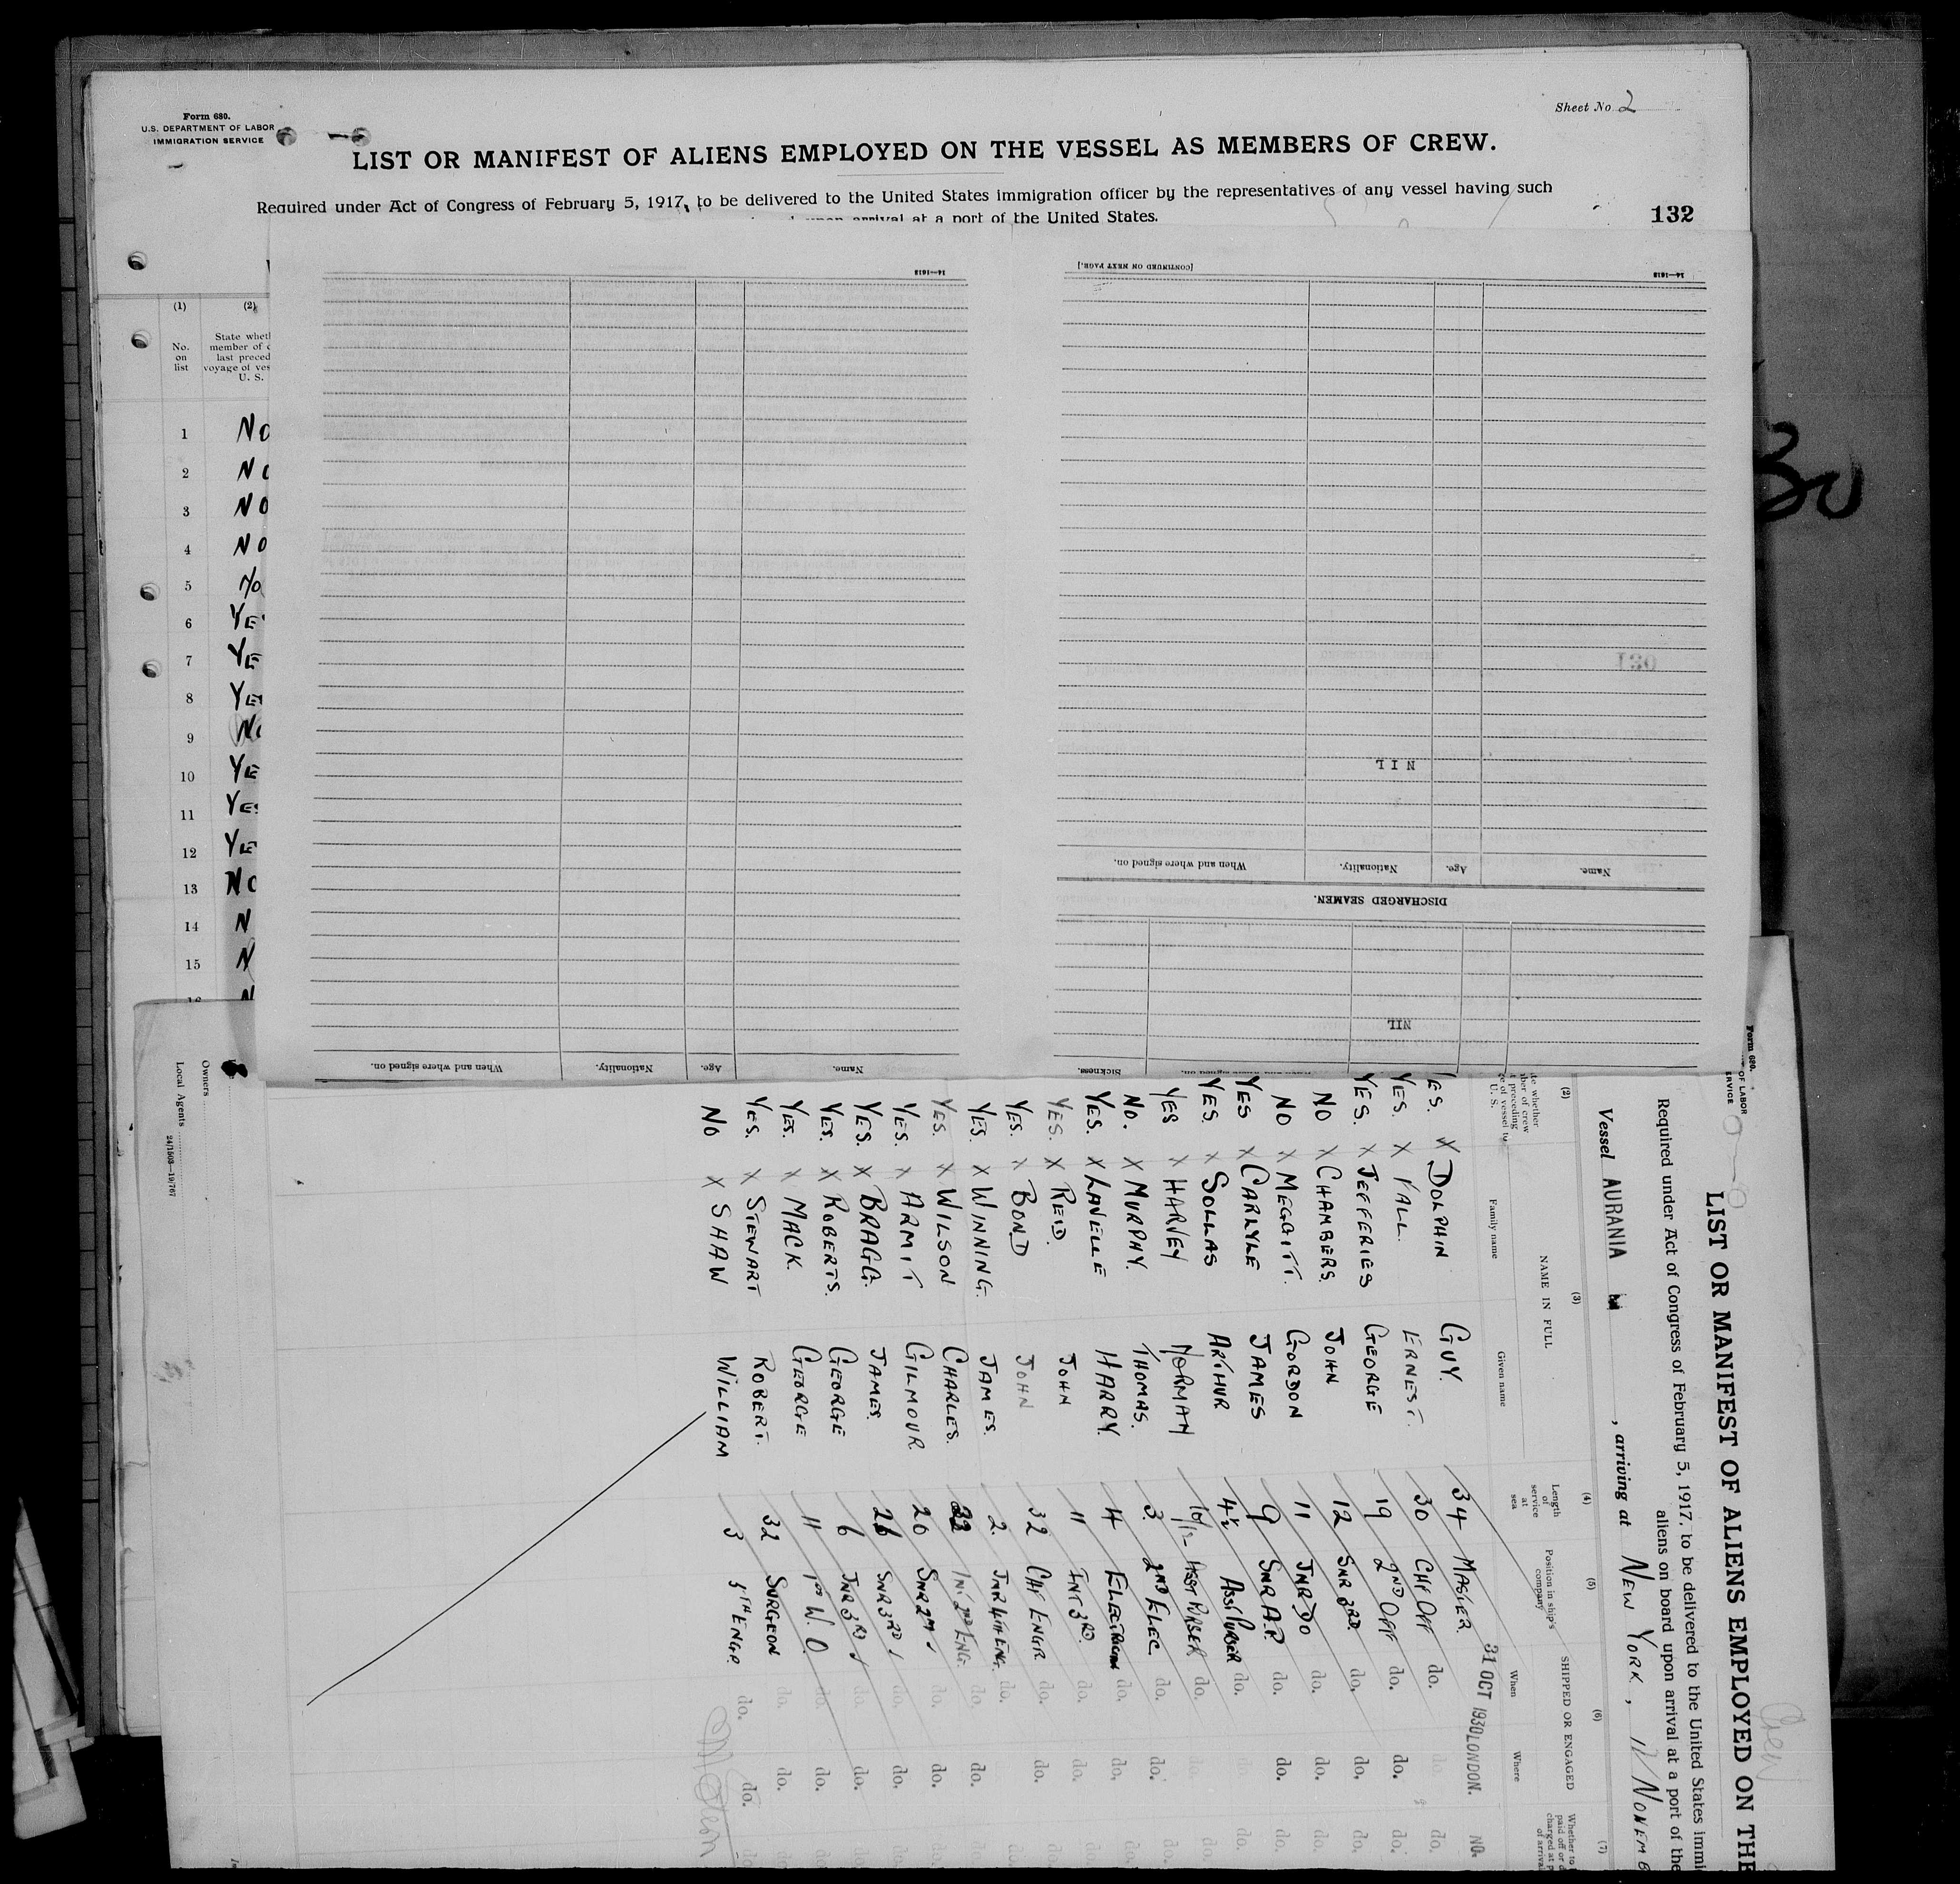 Form 680.
U.S. DEPARTMENT OF LABOR
IMMIGRATION SERVICE
Sheet No. 2
LIST OR MANIFEST OF ALIENS EMPLOYED ON THE VESSEL AS MEMBERS OF CREW.
Required under Act of Congress of February 5, 1917, to be delivered to the United States immigration officer by the representatives of any vessel having such
upon arrival at a port of the United States.
132
(1) (2)
No. on list
State whet
member of c
last preced
voyage of ves
U. S.
1 NO
2 NO
3 NO
4 NO
5 No
6 YE
7 YE
8 YE
9 No
10 YE
11 YES
12 YE
13 NO
14 N
15 N
16 N
14—1618
14—1618
[CONTINUED ON NEXT PAGE.]
NIL
Name. Age. Nationality. When and where signed on.
DISCHARGED SEAMEN.
NIL
Sickness.
Name. Age. Nationality. When and where signed on.
Owners
Local Agents
24/1503—19/767
Form 680.
OF LABOR
ERVICE
LIST OR MANIFEST OF ALIENS EMPLOYED ON THE
Required under Act of Congress of February 5, 1917, to be delivered to the United States immi
aliens on board upon arrival at a port of the
Vessel AURANIA , arriving at NEW YORK, 11 NOVEMB
(2) (3) (4) (5) (6) (7)
te whether
mber of crew
preceding
e of vessel to
U. S.
NAME IN FULL
Family name Given name
Length of service at sea
Position in ship's company
SHIPPED OR ENGAGED
When Where
Whether to
paid off or d
charged at p
of arrival
ES. X DOLPHIN GUY. 34 MASTER 31 OCT 1930 LONDON. NO.
YES. X VALL. ERNEST. 30 CHF OFF do. do. do.
YES. X JEFFERIES GEORGE 19 2ND OFF do. do. do.
NO X CHAMBERS. JOHN 12 SNR 3RD. do. do. do.
NO X MEGGITT. GORDON 11 JNR DO do. do. do.
YES X CARLYLE JAMES 9 SNR A.P. do. do. do.
YES. X SOLLAS ARTHUR 4½ ASST PURSER do. do. do.
YES X HARVEY NORMAN 10/12 ASST PURSER do. do. do.
NO. X MURPHY. THOMAS. 3. 2ND ELEC do. do. do.
YES. X LAVELLE HARRY. 4 ELECTRICIAN do. do. do.
YES. X REID. JOHN 11 INT 3RD. do. do. do.
YES. X BOND JOHN 32 CHF ENGR do. do. do.
YES. X WINNING. JAMES. 2. JNR 4TH ENG. do. do. do.
YES. X WILSON CHARLES. INT 2ND ENG. do. do. do.
YES. X ARMIT GILMOUR 20 SNR 2ND do. do. do.
YES. X BRAGG. JAMES. 26 SNR 3RD do. do. do.
YES. X ROBERTS. GEORGE 6 JNR 3RD do. do. do.
YES. X MACK. GEORGE 11 1ST W.O. do. do. do.
YES. X STEWART ROBERT. 32 SURGEON do. do. do.
NO X SHAW WILLIAM 3 5TH ENGR. do. do. do.